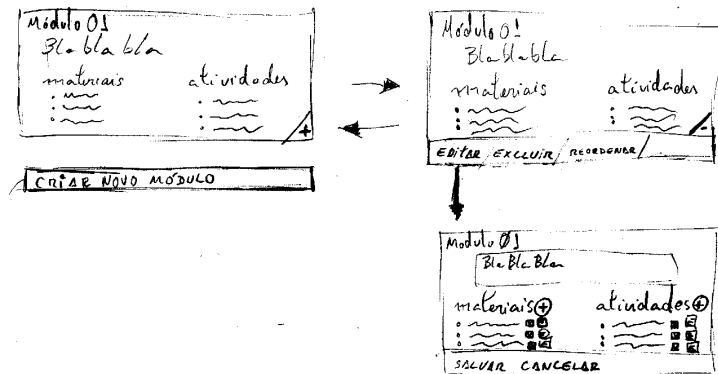 Módulo 01
Bla bla bla
materiais
atividades
+
CRIAR NOVO MÓDULO
Módulo 01
Bla bla bla
materiais
atividades
-
EDITAR / EXCLUIR / REORDENAR /
Modulo 01
Bla Bla Bla
materiais +
atividades +
SALVAR CANCELAR